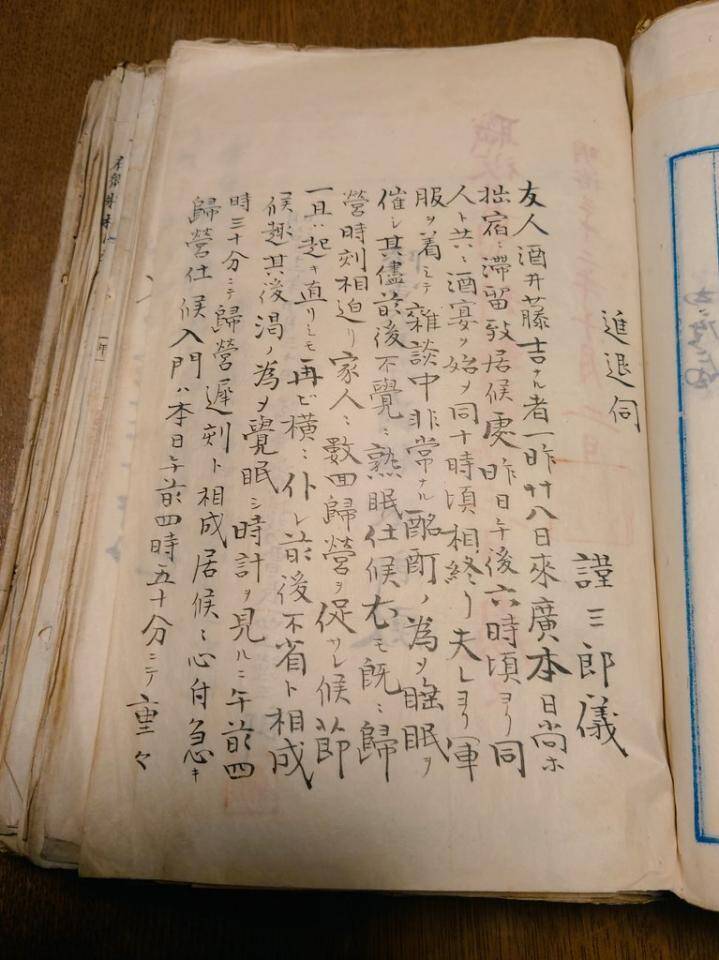 進退伺
謹三郎儀
友人酒井藤吉ナル者一昨廿八日來廣本日尚ホ
拙宿ニ滞留致居候處昨日午後六時頃ヨリ同
人ト共ニ酒宴ヲ始メ同十時頃相終リ夫レヨリ軍
服ヲ着シテ雜談中非常ナル酩酊ノ為メ睡眠ヲ
催シ其儘前後不覺ニ熟眠仕候尤モ既ニ歸
營時刻相迫リ家人ニ數回歸營ヲ促サレ候節
一旦ハ起キ直リシモ再ビ横ニ仆レ前後不省ト相成
候趣其後渇ノ為メ覺眠シ時計ヲ見ルニ午前四
時三十分ニテ歸營遲刻ト相成居候ニ心付急キ
歸營仕候入門ハ本日午前四時五十分ニテ重々